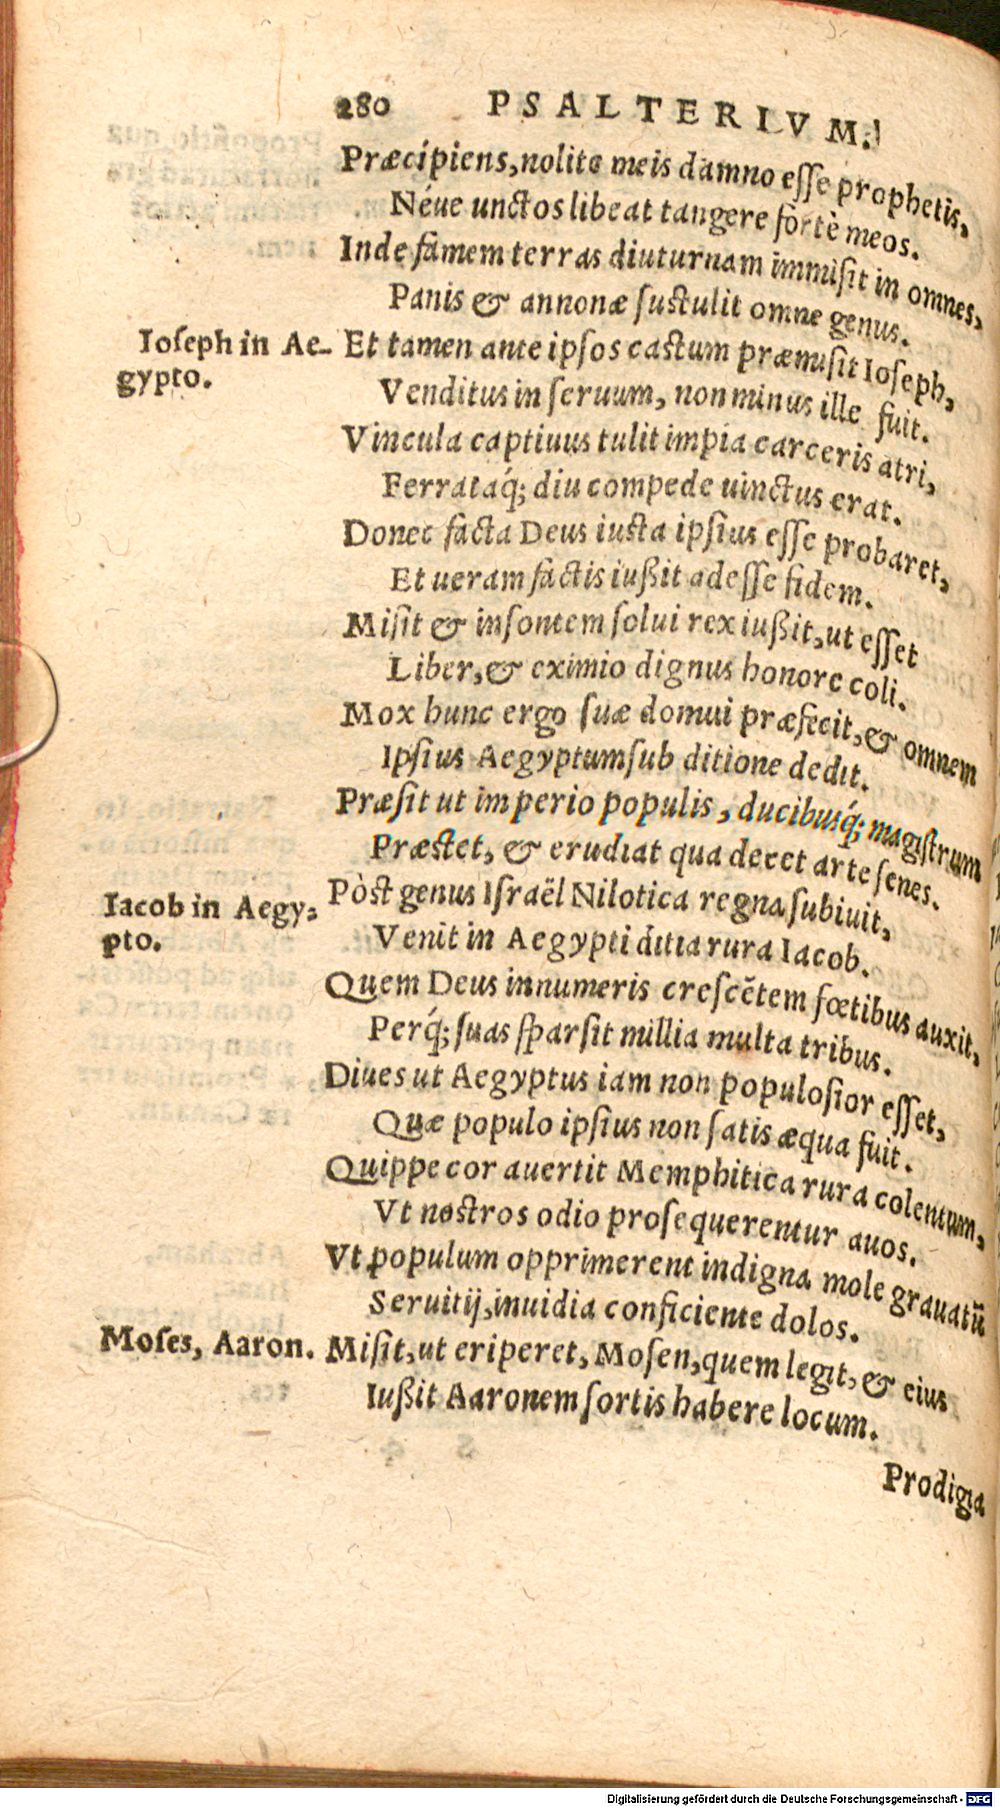 280 PSALTERIVM.
Præcipiens, nolite meis damno eſſe prophetis,
Néue unctos libeat tangere fortè meos.
Inde famem terras diuturnam immiſit in omnes,
Panis & annonæ ſuſtulit omne genus.
Ioſeph in Ae-
gypto.
Et tamen ante ipſos caſtum præmiſit Ioſeph,
Venditus in ſeruum, non minus ille fuit.
Vincula captiuus tulit impia carceris atri,
Ferrataq́; diu compede uinctus erat.
Donec facta Deus iuſta ipſius eſſe probaret,
Et ueram factis iußit adeſſe fidem.
Miſit & inſontem ſolui rex iußit, ut eſſet
Liber, & eximio dignus honore coli.
Mox hunc ergo ſuæ domui præfecit, & omnem
Ipſius Aegyptum ſub ditione dedit.
Præſit ut imperio populis, ducibusq́; magiſtrum
Præſtet, & erudiat qua decet arte ſenes.
Iacob in Aegy-
pto.
Pòſt genus Iſraël Nilotica regna ſubiuit,
Venit in Aegypti ditia rura Iacob.
Quem Deus innumeris creſcẽtem fœtibus auxit,
Perq́; ſuas ſparſit millia multa tribus.
Diues ut Aegyptus iam non populoſior eſſet,
Quæ populo ipſius non ſatis æqua fuit.
Quippe cor auertit Memphitica rura colentum,
Vt noſtros odio proſequerentur auos.
Vt populum opprimerent indigna mole grauatũ
Seruitij, inuidia conficiente dolos.
Moſes, Aaron.
Miſit, ut eriperet, Moſen, quem legit, & eius
Iußit Aaronem ſortis habere locum.
Prodigia
Digitalisierung gefördert durch die Deutsche Forschungsgemeinschaft - DFG